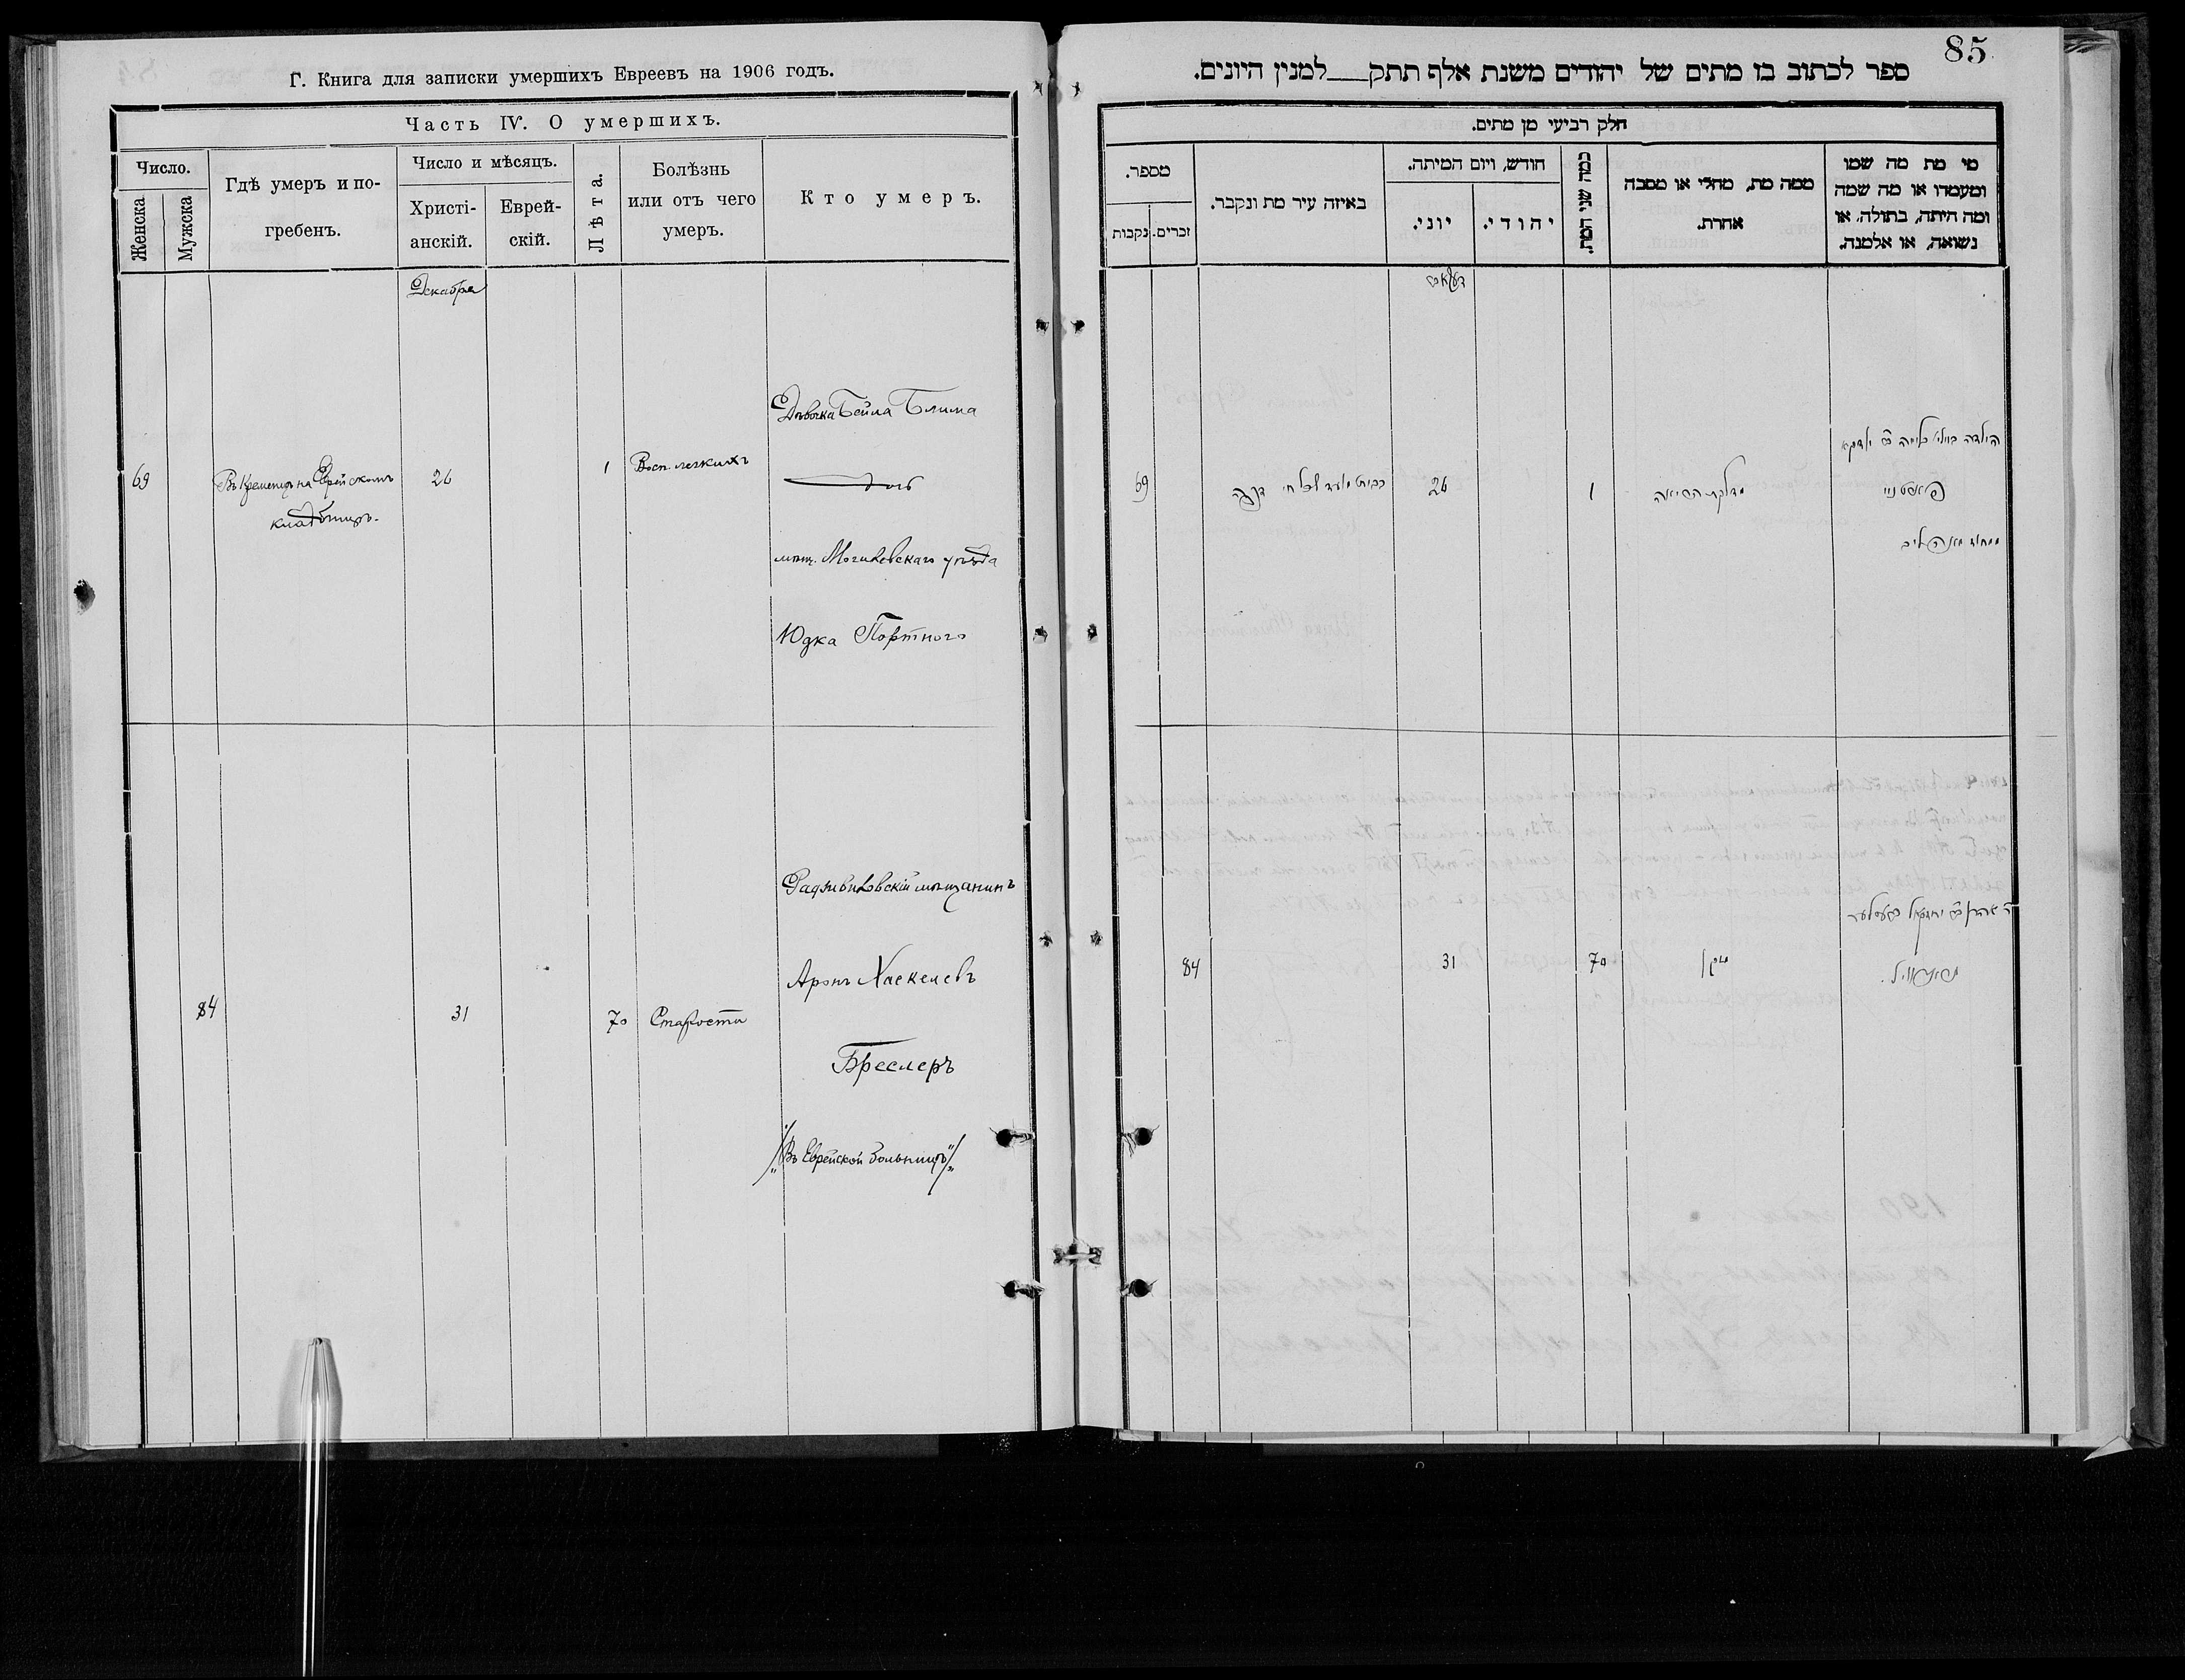 Г. Книга для записки умершихъ Евреевъ на 1906 годъ.
Часть IV. О умершихъ.
Число.
Женска
Мужска
Гдѣ умеръ и по-
гребенъ.
Число и мѣсяцъ.
Христі-
анскій.
Еврей-
скій.
Лѣта.
Болѣзнь
или отъ чего
умеръ.
Кто умеръ.
Декабря
69
Въ Кременцѣ на Еврейскомъ
кладбищѣ.
26
1
Восп. легкихъ
Дѣвочка Бейла Блима
дочь
мѣщ. Могилевскаго уѣзда
Юдка Портного
84
31
70
Старости
Радзивиловскій мѣщанинъ
Аронъ Хаскелевъ
Бреслеръ
/"Въ Еврейской больницѣ"/
85
ספר לכתוב בו מתים של יהודים משנת אלף תתק__למנין היונים.
חלק רביעי מן מתים.
מספר.
נקבות
זכרים.
באיזה עיר מת ונקבר.
חודש, ויום המיתה.
יוני.
יהודי.
כמה שני המת.
ממה מת, מחלי או מסבה
אחרת.
מי מת מה שמו
ומעמדו או מה שמה
ומה היתה, בתולה, או
נשואה, או אלמנה.
69
26
1
דלקת הריאה
הילדה
84
31
70
זקן